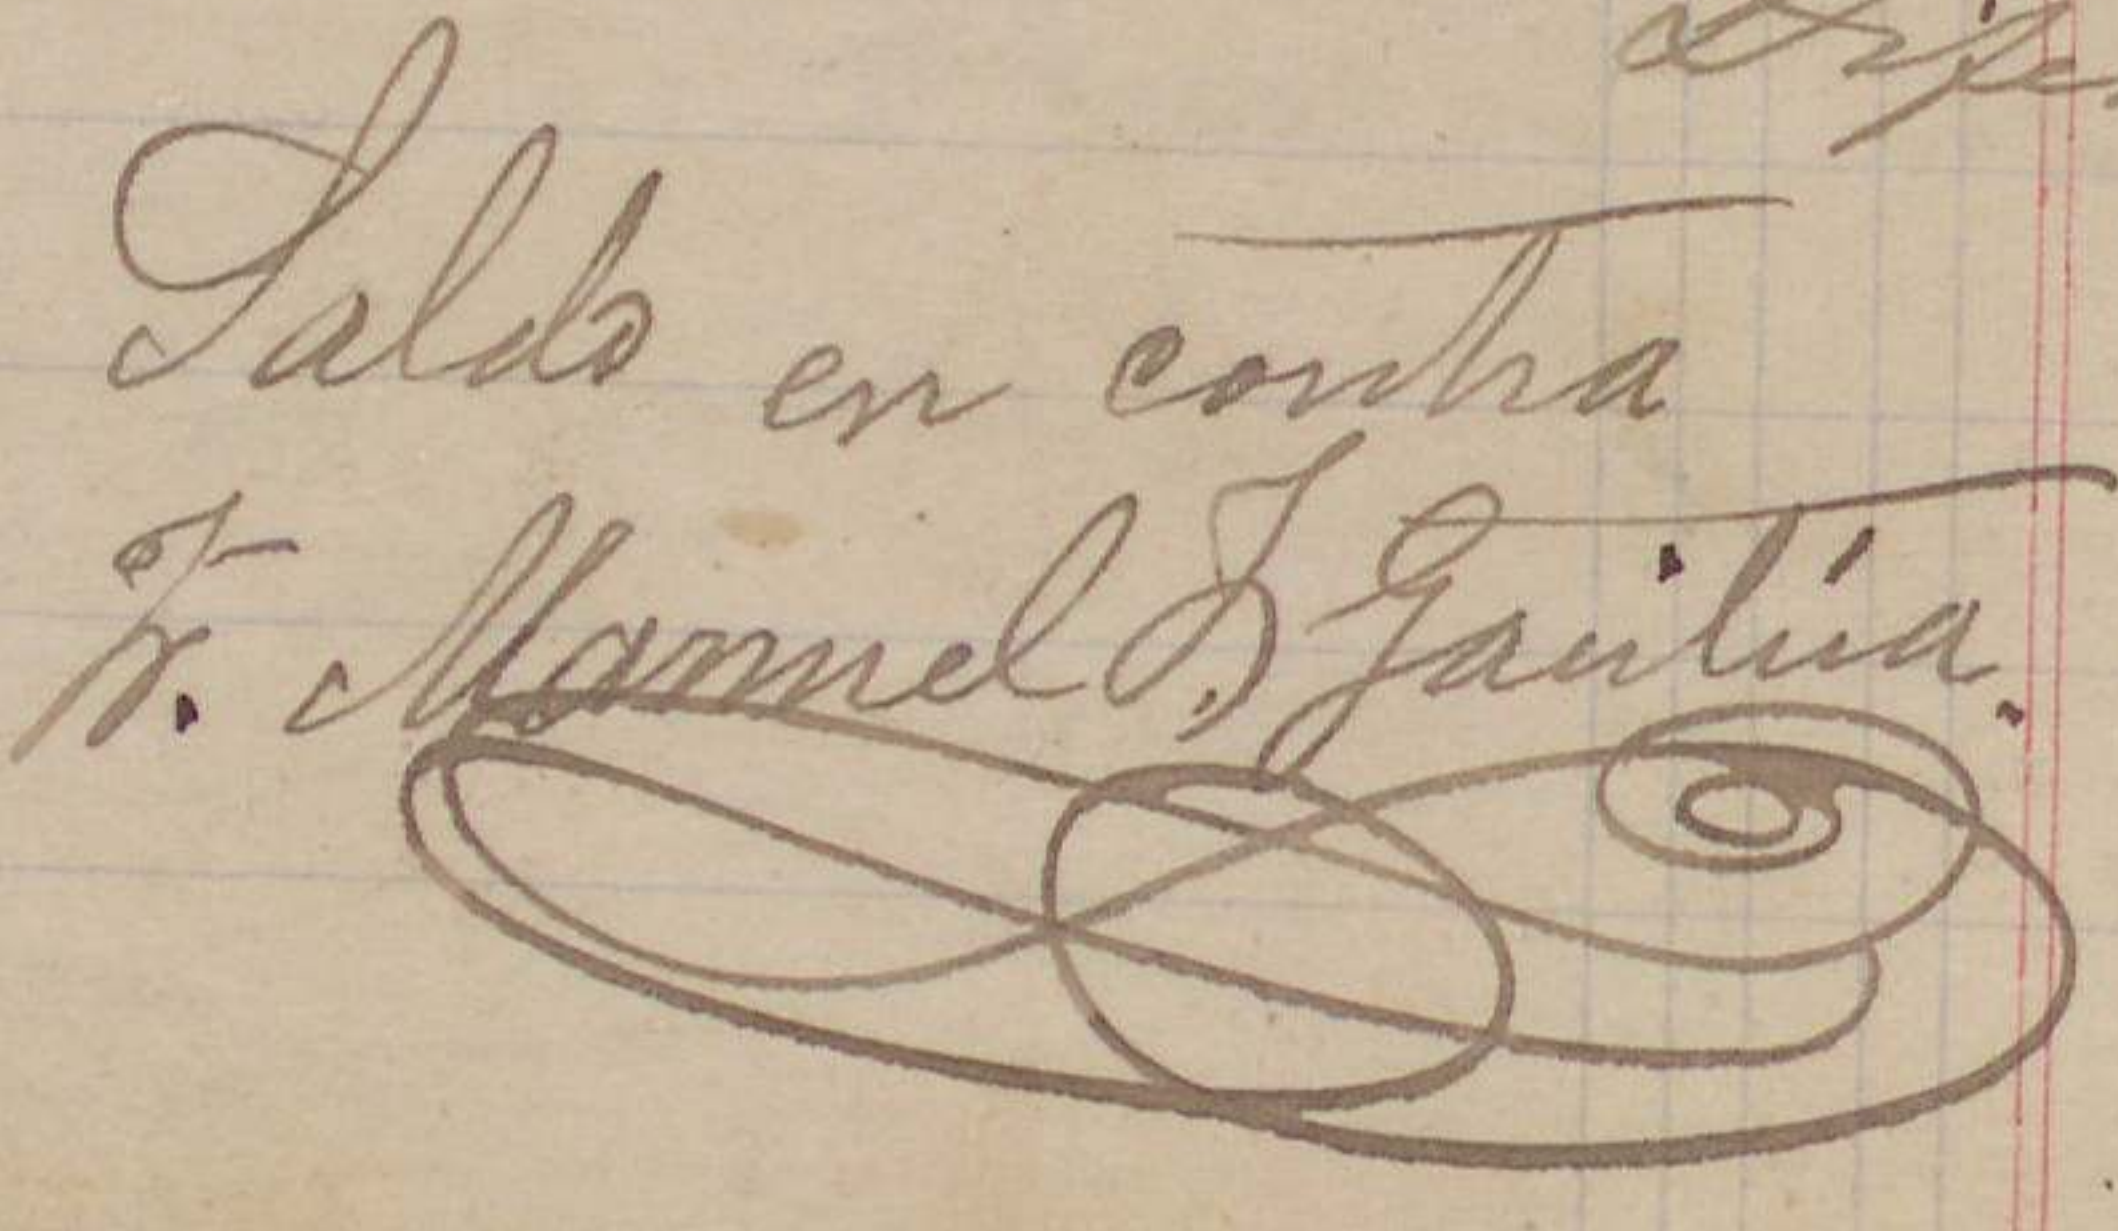 Saldo en contra
Fr. Manuel F. Gautúa.